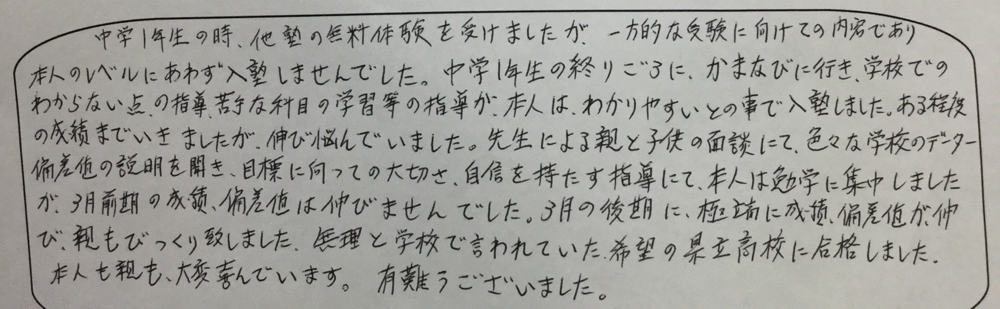 中学1年生の時、他塾の無料体験を受けましたが、一方的な受験に向けての内容であり
本人のレベルにあわず入塾しませんでした。中学1年生の終りごろに、かまなびに行き、学校での
わからない点の指導、苦手な科目の学習等の指導が、本人は、わかりやすいとの事で入塾しました。ある程度
の成績までいきましたが、伸び悩んでいました。先生による親と子供の面談にて、色々な学校のデーター
偏差値の説明を聞き、目標に向っての大切さ、自信を持たす指導にて、本人は勉学に集中しました
が、3月前期の成績、偏差値は伸びませんでした。3月の後期に、極端に成績、偏差値が、伸
び、親もびっくり致しました、無理と学校で言われていた、希望の県立高校に合格しました、
本人も親も、大変喜んでいます。 有難うございました。